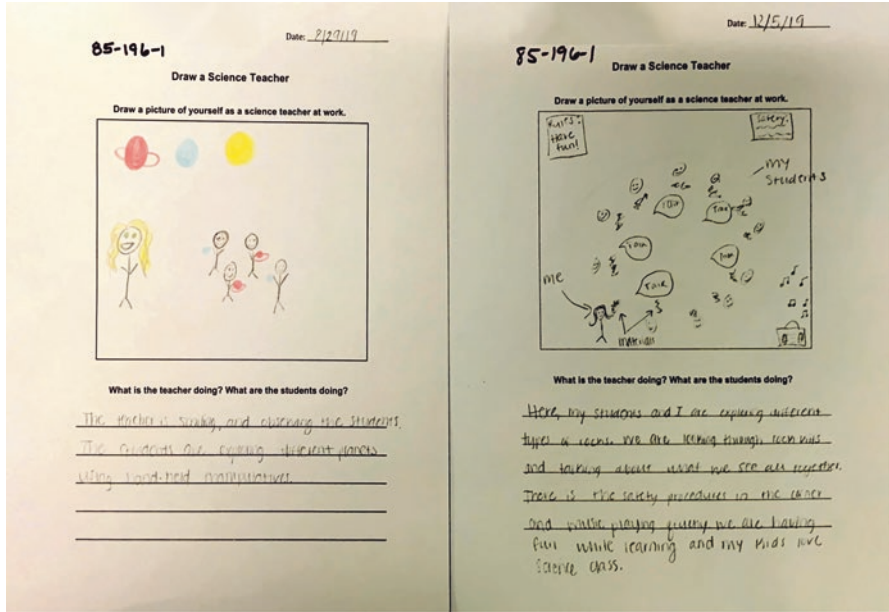 Date: 8/29/19
85-196-1
Draw a Science Teacher
Draw a picture of yourself as a science teacher at work.
What is the teacher doing? What are the students doing?
The teacher is smiling, and observing the students.
The students are exploring different planets
using hand-held manipulatives.
Date: 12/5/19
85-196-1
Draw a Science Teacher
Draw a picture of yourself as a science teacher at work.
Rules:
Have
fun!
Safety:
my
students
Talk
Talk
Talk
Talk
Talk
me
materials
What is the teacher doing? What are the students doing?
Here, my students and I are exploring different
types of rocks. We are looking through rock kits
and talking about what we see all together.
There is the safety procedures in the corner
and music playing quietly. We are having
fun while learning and my kids love
science class.